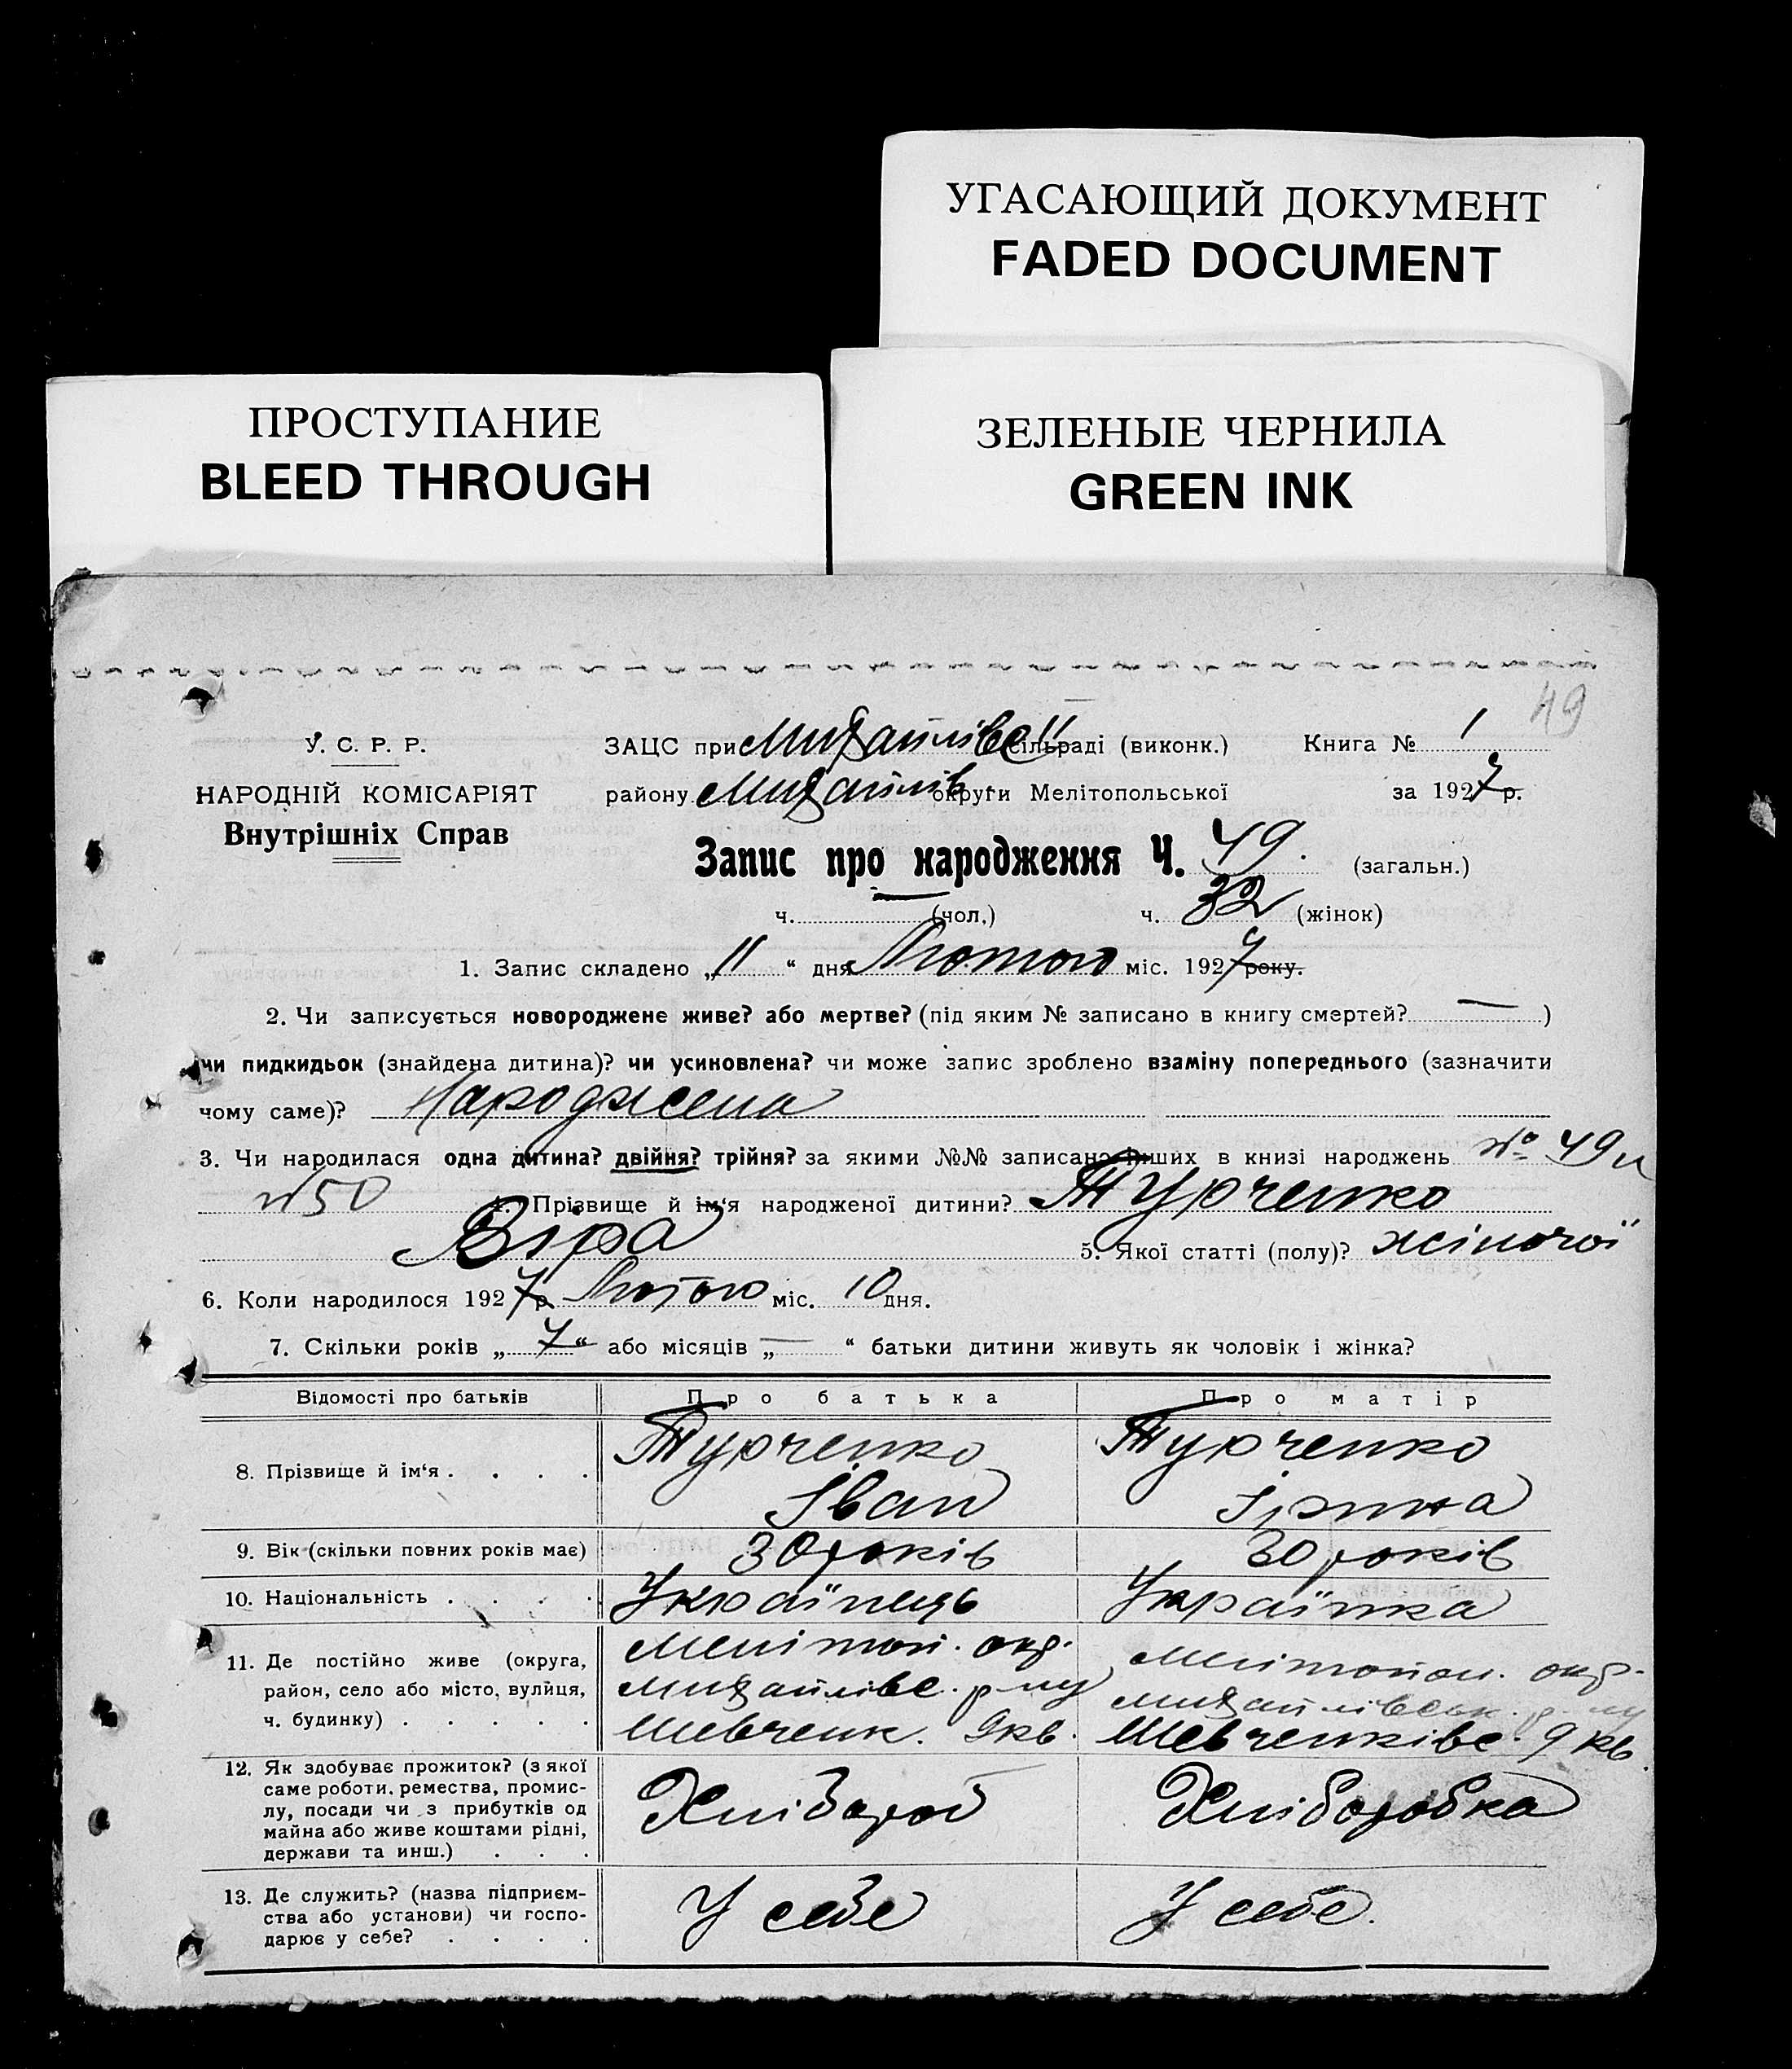 УГАСАЮЩИЙ ДОКУМЕНТ
FADED DOCUMENT
ПРОСТУПАНИЕ
BLEED THROUGH
ЗЕЛЕНЫЕ ЧЕРНИЛА
GREEN INK
49
У. С. Р. Р.
НАРОДНІЙ КОМІСАРІЯТ
Внутрішніх Справ
ЗАЦС при Михайлівс сільраді (виконк.) Книга № 1
району Михайлів. округи Мелітопольської за 1927 р.
Запис про народження Ч. 49. (загальн.)
ч. — (чол.) ч. 32 (жінок)
1. Запис складено „11“ дня Лютого міс. 1927 року.
2. Чи записується новороджене живе? або мертве? (під яким № записано в книгу смертей? — )
чи пидкидьок (знайдена дитина)? чи усиновлена? чи може запис зроблено взаміну попереднього (зазначити
чому саме)? Народжена
3. Чи народилася одна дитина? двійня? трійня? за якими №№ записано інших в книзі народжень № 49 и
№ 50 4. Прізвище й ім'я народженої дитини? Турченко
Віра 5. Якої статті (полу)? жіночої
6. Коли народилося 1927 р. Лютого міс. 10 дня.
7. Скільки років „ 7 “ або місяців „ — “ батьки дитини живуть як чоловік і жінка?
Відомості про батьків Про батька Про матір
8. Прізвище й ім'я . . . . Турченко Іван Турченко Ірина
9. Вік (скільки повних років має) 30 років 30 років
10. Національність . . . . Українець Українка
11. Де постійно живе (округа, Мелітоп. окр. Мелітопол. окр.
район, село або місто, вулиця, Михайлівс. р-ну Михайлівськ. р-ну
ч. будинку) . . . . . Шевченк. 9 кв. Шевченківс. 9 кв.
12. Як здобуває прожиток? (з якої
саме роботи, ремества, промис-
лу, посади чи з прибутків од Хлібороб Хліборобка
майна або живе коштами рідні,
держави та инш.) . . .
13. Де служить? (назва підприєм-
ства або установи) чи госпо- У себе У себе.
дарює у себе? . . . .